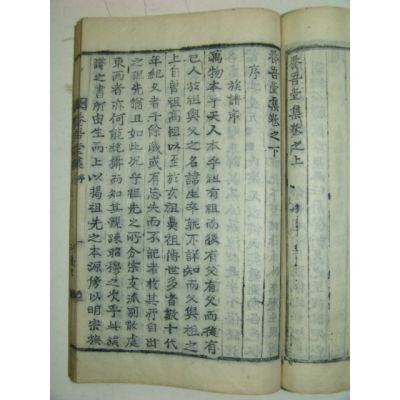 養吾堂集卷之上
養吾堂集卷之下
序
族譜序
萬物本乎天人本乎祖有祖而後有父有父而後有
己人於祖與父之名諱生卒孰不詳知而父與祖之
上自曾祖高祖以至於玄祖鼻祖傳世多者數十代
年紀久者千餘歲或有忘失而不記者於其所自出
之祖先猶且如此況乎祖先之所分宗支派別散處
東西者亦何能統攝而知其親疎昭穆之次乎此族
譜之書所由生而上以揭祖先之本源修以明宗族
養吾堂集 序 一